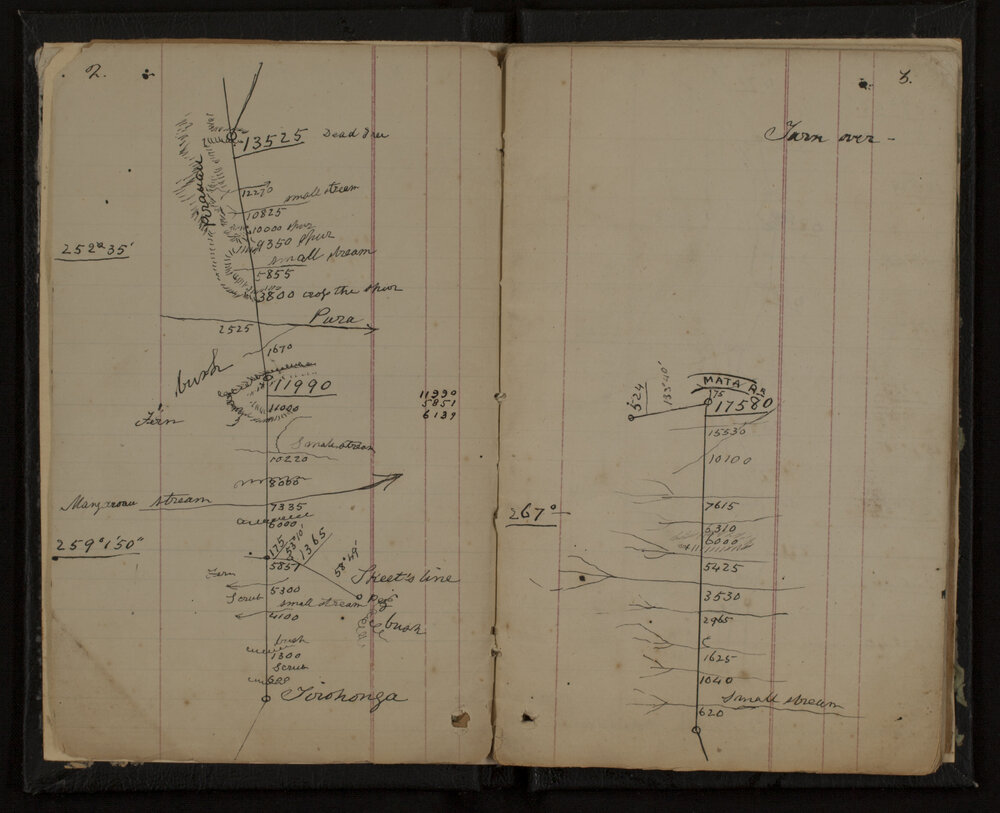 2.
13525 Dead Tree
12270
small stream
10825
10000 spur
9350 spur
252° 35'
small stream
5855
3800 across the spur
Pura
2525
1670
bush
11990
11990
5851
6139
11000
Fern
Small stream
10220
8000
stream
7335
6000
259° 1' 50"
175
53° 10'
1365
58° 49'
5851
Skeet's line
Fern
5300
Peg
Scrub
small stream
4100
bush
bush
1300
Scrub
600
Torohonga
3.
Turn over -
MATA
524
133° 40'
175
17580
15530
10100
7615
267°
6310
6000
5425
3530
2965
1625
1040
small stream
620